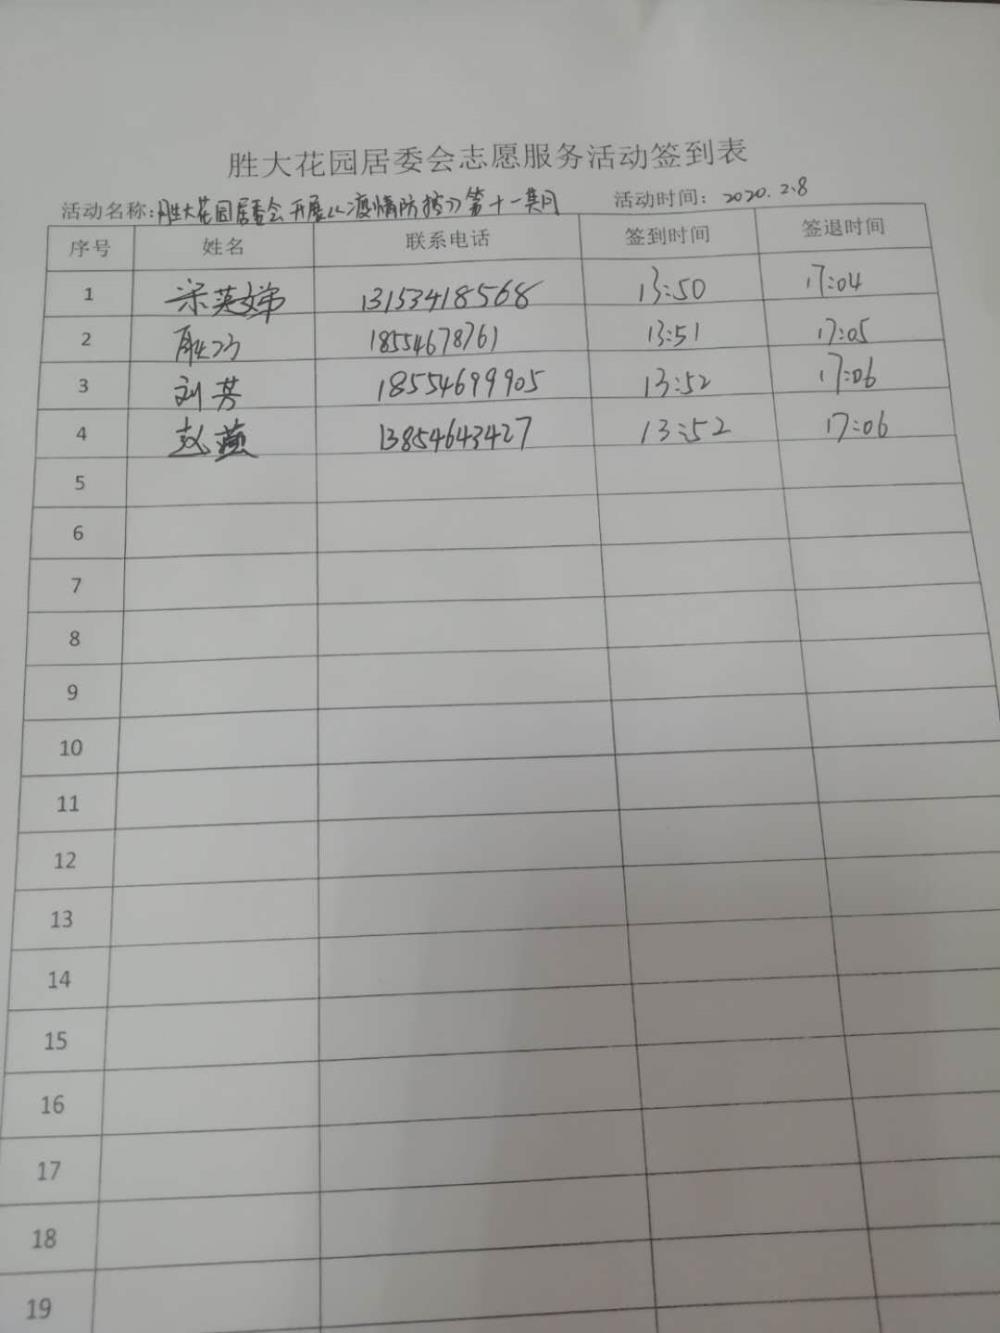 胜大花园居委会志愿服务活动签到表
活动名称:胜大花园居委会开展《疫情防控》第十一期 活动时间: 2020.2.8
序号 姓名 联系电话 签到时间 签退时间
1 宋英娣 13153418568 13:50 17:04
2 18554678761 13:51 17:05
3 刘芳 18554699905 13:52 17:06
4 赵燕 13854643427 13:52 17:06
5
6
7
8
9
10
11
12
13
14
15
16
17
18
19